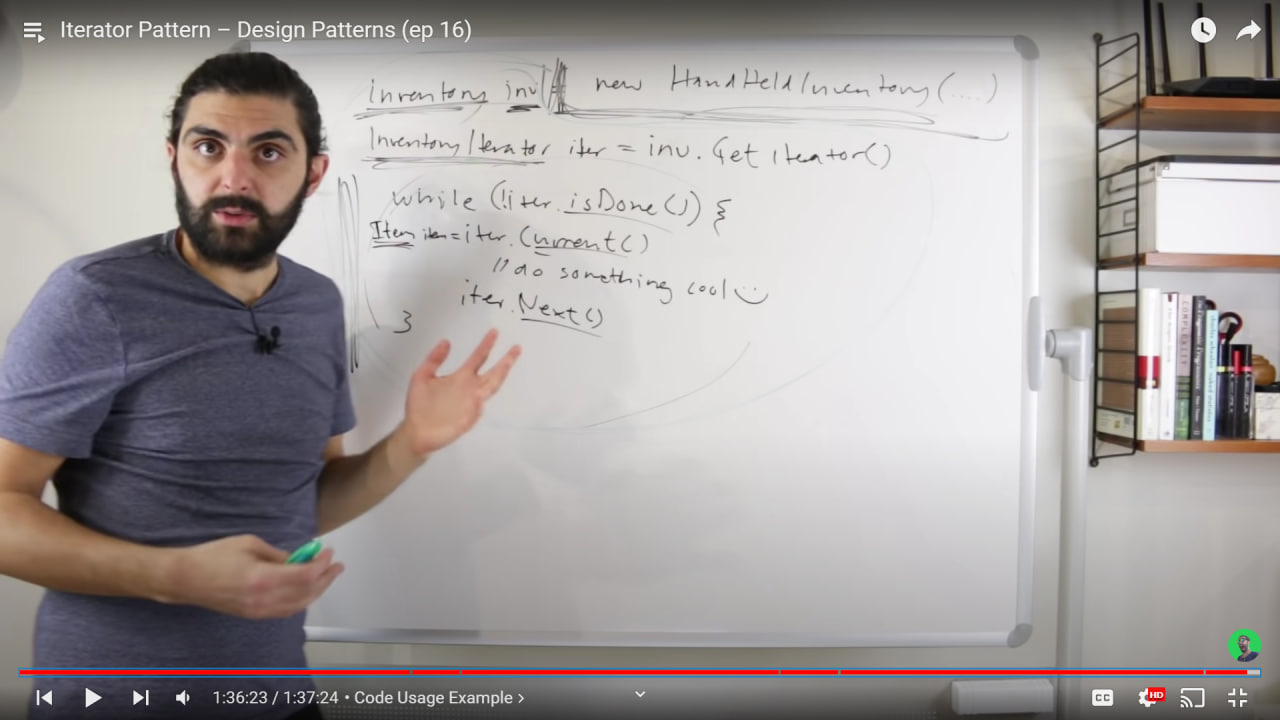 Iterator Pattern – Design Patterns (ep 16)
inventory inv = new HandHeldInventory(....)
InventoryIterator iter = inv.GetIterator()
while (!iter.isDone()) {
Item item = iter.Current()
// do something cool
iter.Next()
}
COMPLEXITY
1:36:23 / 1:37:24 • Code Usage Example >
CC
HD